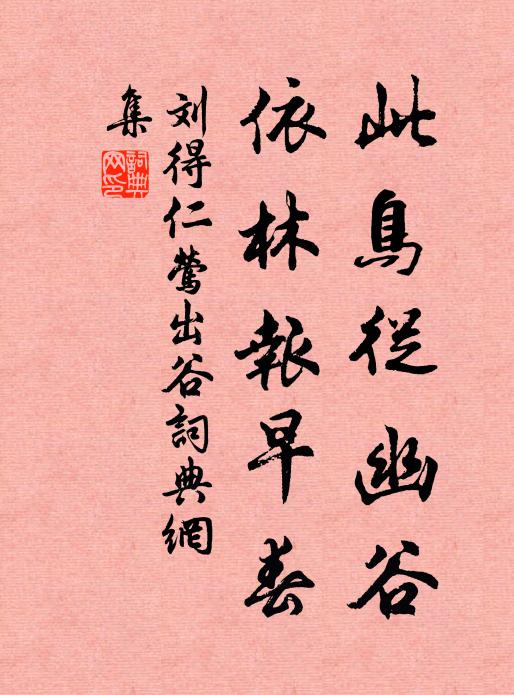 此鳥從幽谷
依林報早春
刘得仁鶯出谷詞典網
集
詞典
网印